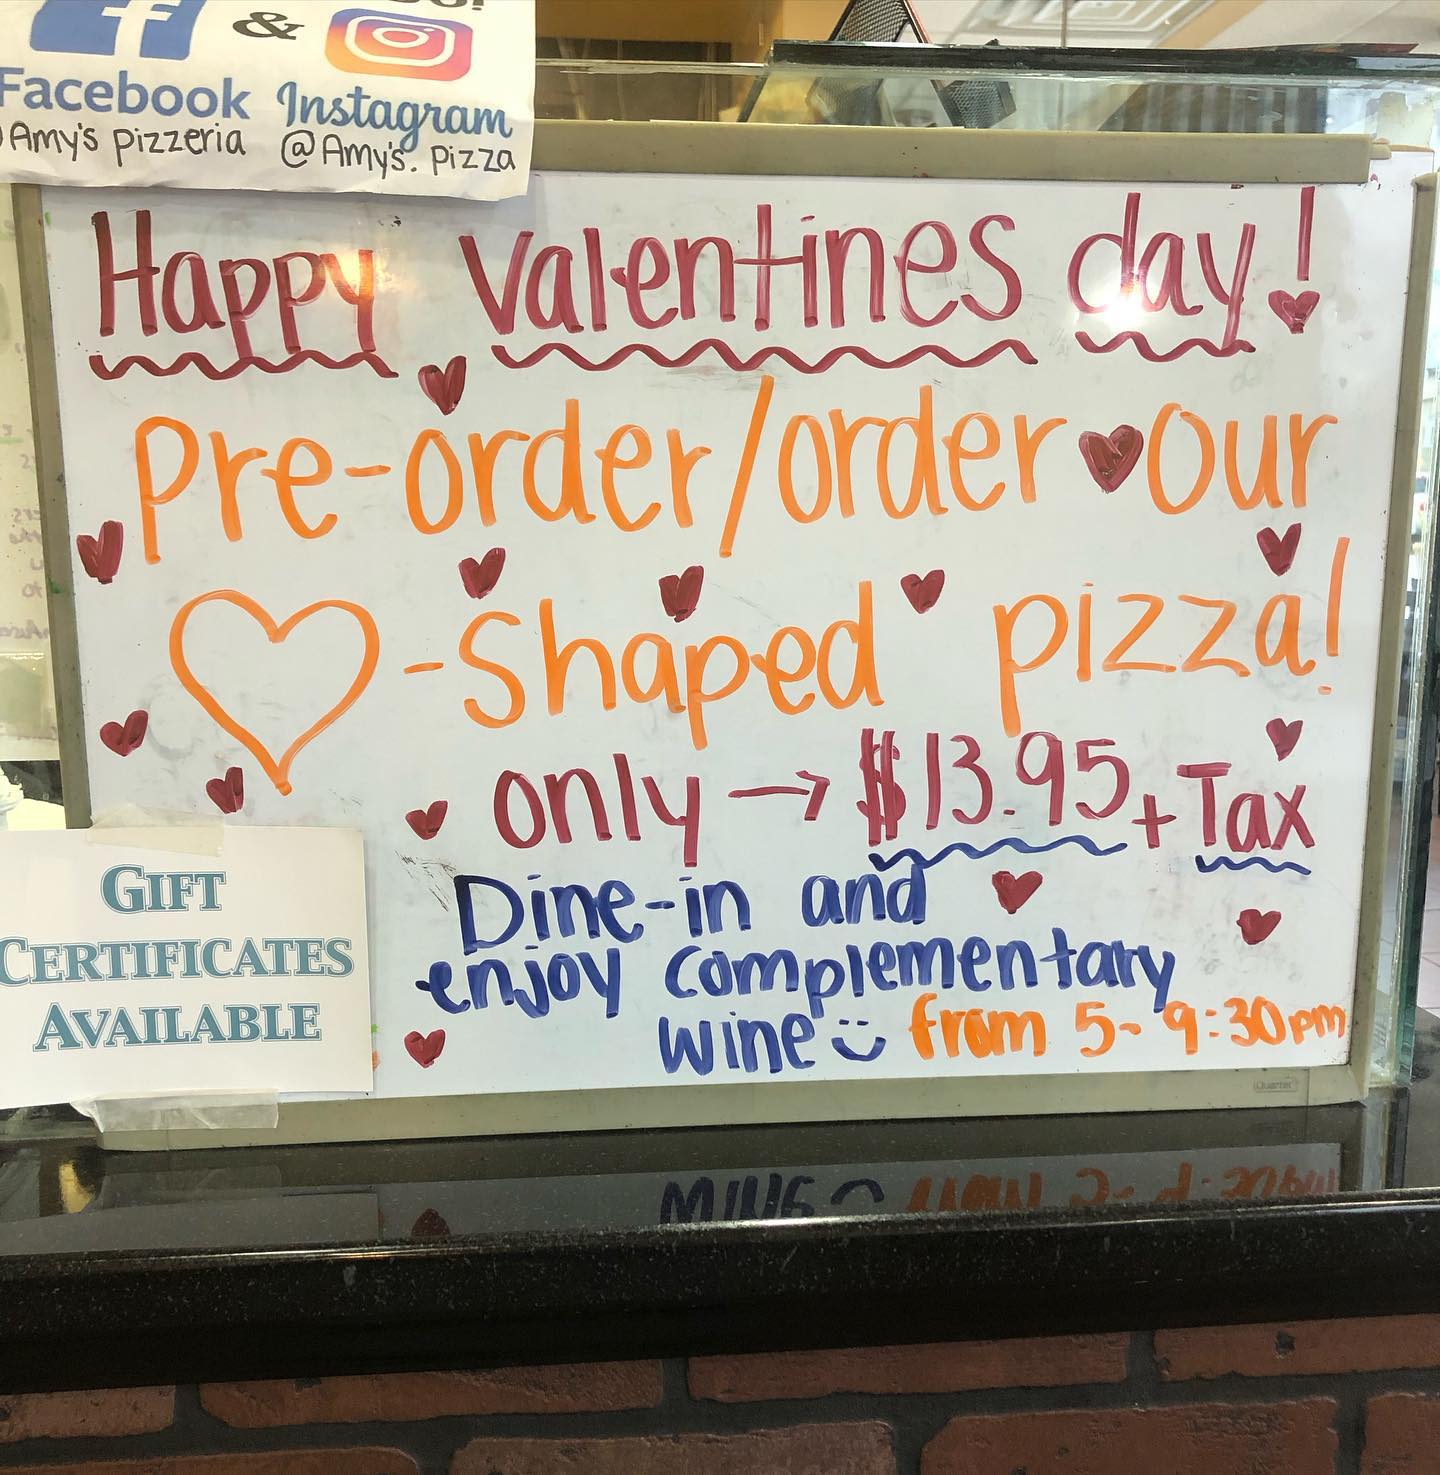 &
Facebook Instagram
Amy's pizzeria @Amy's. pizza
Happy Valentines day!
Pre-order/order our
-Shaped pizza!
only → $13.95 + Tax
Dine-in and
enjoy complementary
wine from 5- 9:30pm
GIFT
CERTIFICATES
AVAILABLE
Quartet